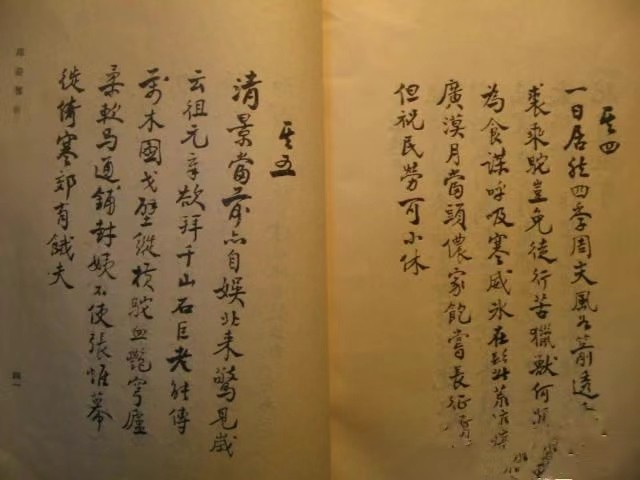 其四
一日居然四季周尖風如箭透
裘乘駝豈免徒行苦獵獸何
為食謀呼吸寒威氷在
廣漠月當頭儂家飽嘗長征
但祝民勞可小休
其五
清景當前亦自娛北來驚見歲
云徂元章欲拜千山石巨老能傳
萬木圖戈壁縱橫駝血艷穹廬
柔軟馬通鋪封姨不使張帷幕
徙倚寒郊有餓夫
四一